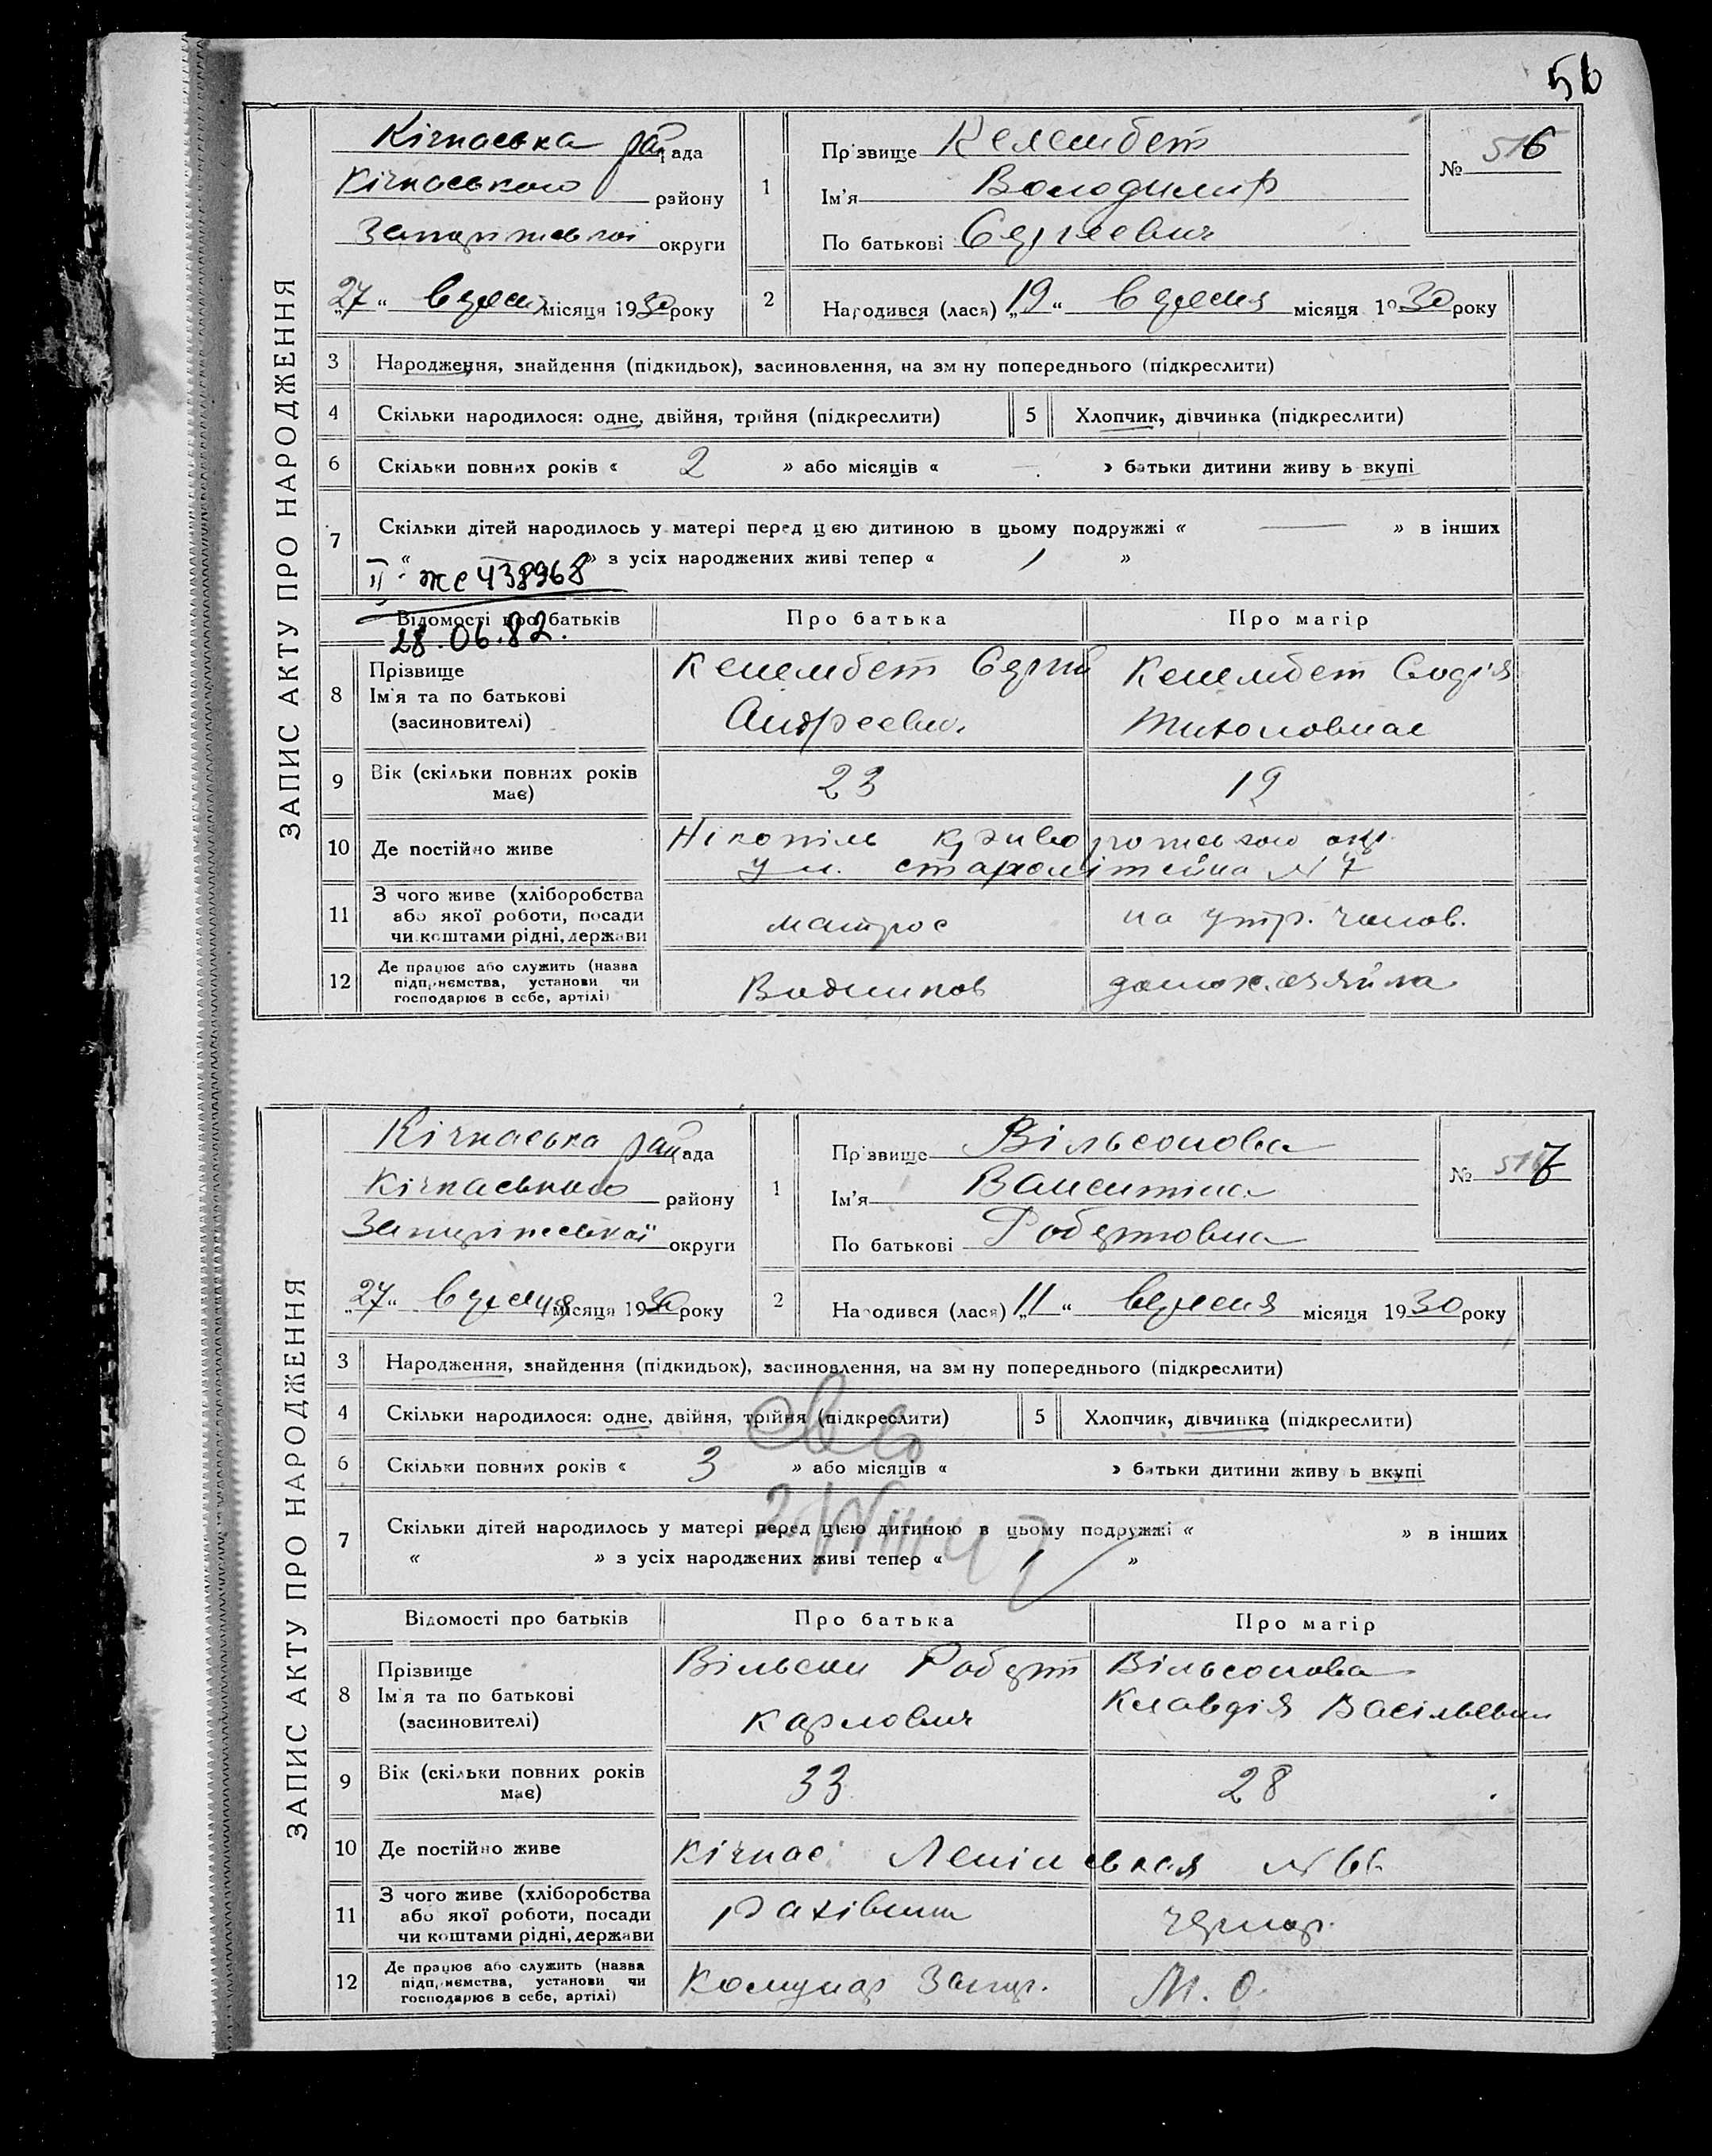 56
ЗАПИС АКТУ ПРО НАРОДЖЕННЯ
Кічкаська рай рада
Кічкаського району
Запоріжської округи
„27" вересня місяця 1930 року
1 Прізвище Келембет
Ім'я Володимир
По батькові Сергеевич
№ 6
2 Народився (лася) „19" вересня місяця 1930 року
3 Народження, знайдення (підкидьок), засиновлення, на зміну попереднього (підкреслити)
4 Скільки народилося: одне, двійня, трійня (підкреслити) 5 Хлопчик, дівчинка (підкреслити)
6 Скільки повних років « 2 » або місяців « — » батьки дитини живуть вкупі
7 Скільки дітей народилось у матері перед цією дитиною в цьому подружжі « — » в інших
« — » з усіх народжених живі тепер « 1 »
II жс 438968
28.06.82.
Відомості про батьків Про батька Про матір
8 Прізвище Ім'я та по батькові (засновителі)
Келембет Сергій
Андреевич
Келембет Софія
9 Вік (скільки повних років має) 23 19
10 Де постійно живе Нікопіль Криворожського окр.
ул. старолітейна № 7
11 З чого живе (хліборобства або якої роботи, посади чи коштами рідні, держави матрос на утр. чолов.
12 Де працює або служить (назва підприємства, установи чи господарює в себе, артілі) Водников домохазяйка
ЗАПИС АКТУ ПРО НАРОДЖЕННЯ
Кічкаська рай рада
Кічкаського району
Запоріжської округи
„27" вересня місяця 1930 року
1 Прізвище Вільсонова
Ім'я Валентіна
По батькові Робертовна
№ 7
2 Народився (лася) „11" вересня місяця 1930 року
3 Народження, знайдення (підкидьок), засиновлення, на зміну попереднього (підкреслити)
4 Скільки народилося: одне, двійня, трійня (підкреслити) 5 Хлопчик, дівчинка (підкреслити)
6 Скільки повних років « 3 » або місяців « » батьки дитини живуть вкупі
7 Скільки дітей народилось у матері перед цією дитиною в цьому подружжі « » в інших
« » з усіх народжених живі тепер « 1 »
Відомості про батьків Про батька Про матір
8 Прізвище Ім'я та по батькові (засиновителі)
Вільсон Роберт
Карлович
Вільсонова
Клавдія Васільевна
9 Вік (скільки повних років має) 33 28
10 Де постійно живе Кічкас Ленінськая № 66
11 З чого живе (хліборобства або якої роботи, посади чи коштами рідні, держави рахівник
12 Де працює або служить (назва підприємства, установи чи господарює в себе, артілі) Комунар Запор. М. О.